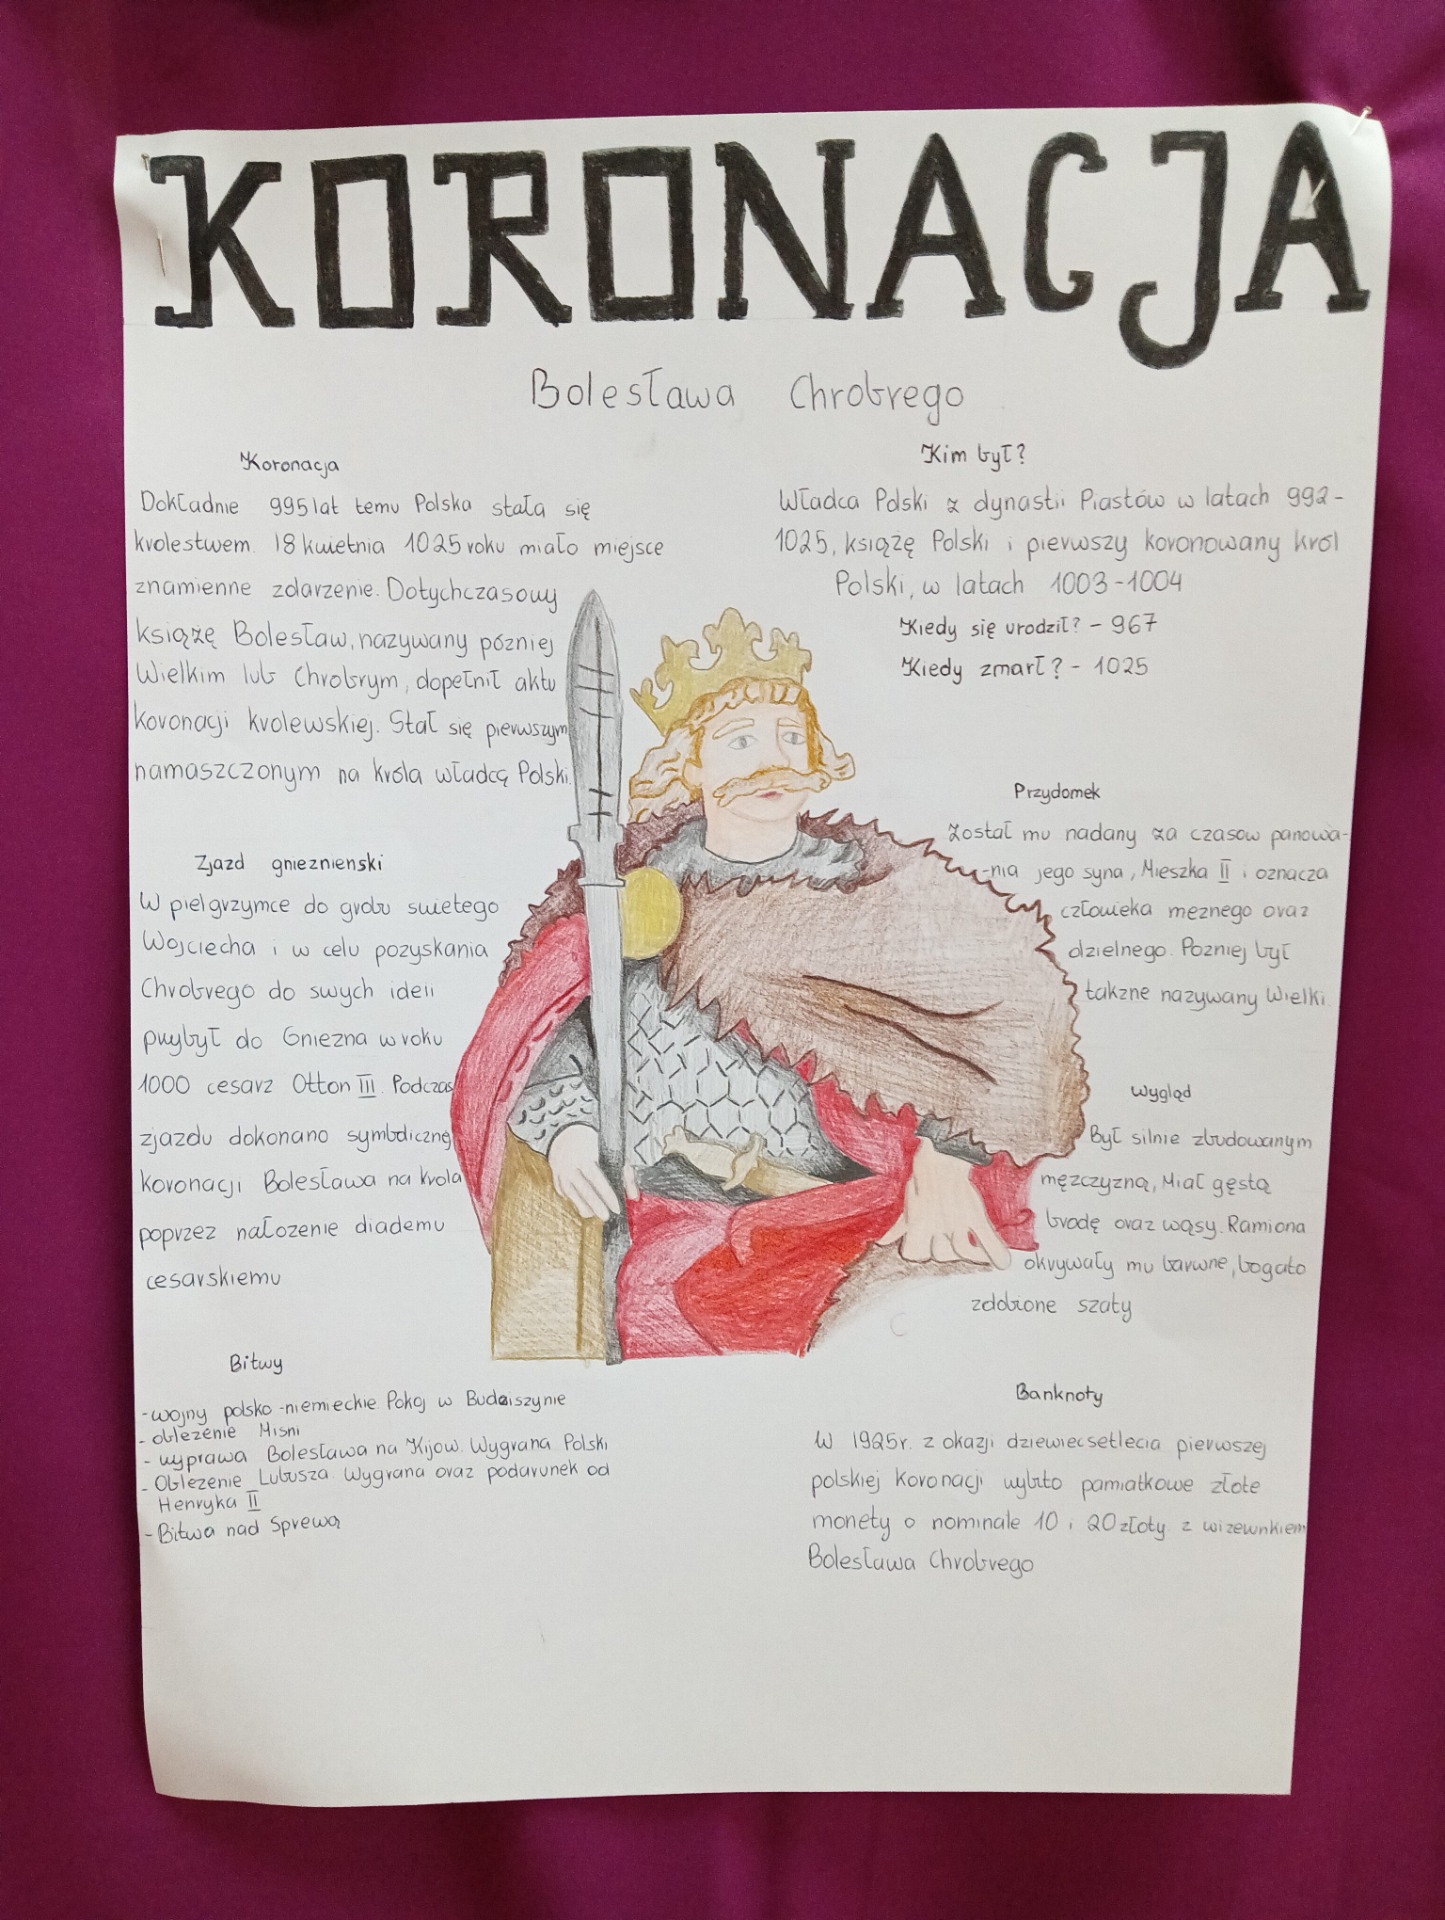 KORONACJA
Bolesława Chrobrego
Koronacja
Dokładnie 995 lat temu Polska stała się
krolestwem. 18 kwietnia 1025 roku miało miejsce
znamienne zdarzenie. Dotychczasowy
książę Bolesław, nazywany pózniej
Wielkim lub Chrobrym, dopełnił aktu
koronacji krolewskiej. Stał się pierwszym
namaszczonym na króla władcą Polski.
Zjazd gnieznienski
W pielgrzymce do grobu swietego
Wojciecha i w celu pozyskania
Chrobrego do swych ideii
przybył do Gniezna w roku
1000 cesarz Otton III. Podczas
zjazdu dokonano symbolicznej
koronacji Bolesława na krola
poprzez nałozenie diademu
cesarskiemu
Bitwy
-wojny polsko-niemieckie. Pokoj w Budziszynie
- oblezenie Misni
- wyprawa Bolesława na Kijow. Wygrana Polski
- Oblezenie Lubusza. Wygrana oraz podarunek od
Henryka II
-Bitwa nad Sprewą
Kim był?
Władca Polski z dynastii Piastów w latach 992-
1025, książę Polski i pierwszy koronowany król
Polski, w latach 1003-1004
Kiedy się urodził? - 967
Kiedy zmarł? - 1025
Przydomek
Został mu nadany za czasow panowa-
-nia jego syna, Mieszka II i oznacza
człowieka meznego oraz
dzielnego. Pozniej był
takzne nazywany Wielki
Wygląd
Był silnie zbudowanym
mężczyzną, Miał gęstą
brodę oraz wąsy. Ramiona
okrywały mu barwne, bogato
zdobione szaty
Banknoty
W 1925r. z okazji dziewiecsetlecia pierwszej
polskiej koronacji wybito pamiatkowe złote
monety o nominale 10 i 20 złoty z wizewnkiem
Bolesława Chrobrego